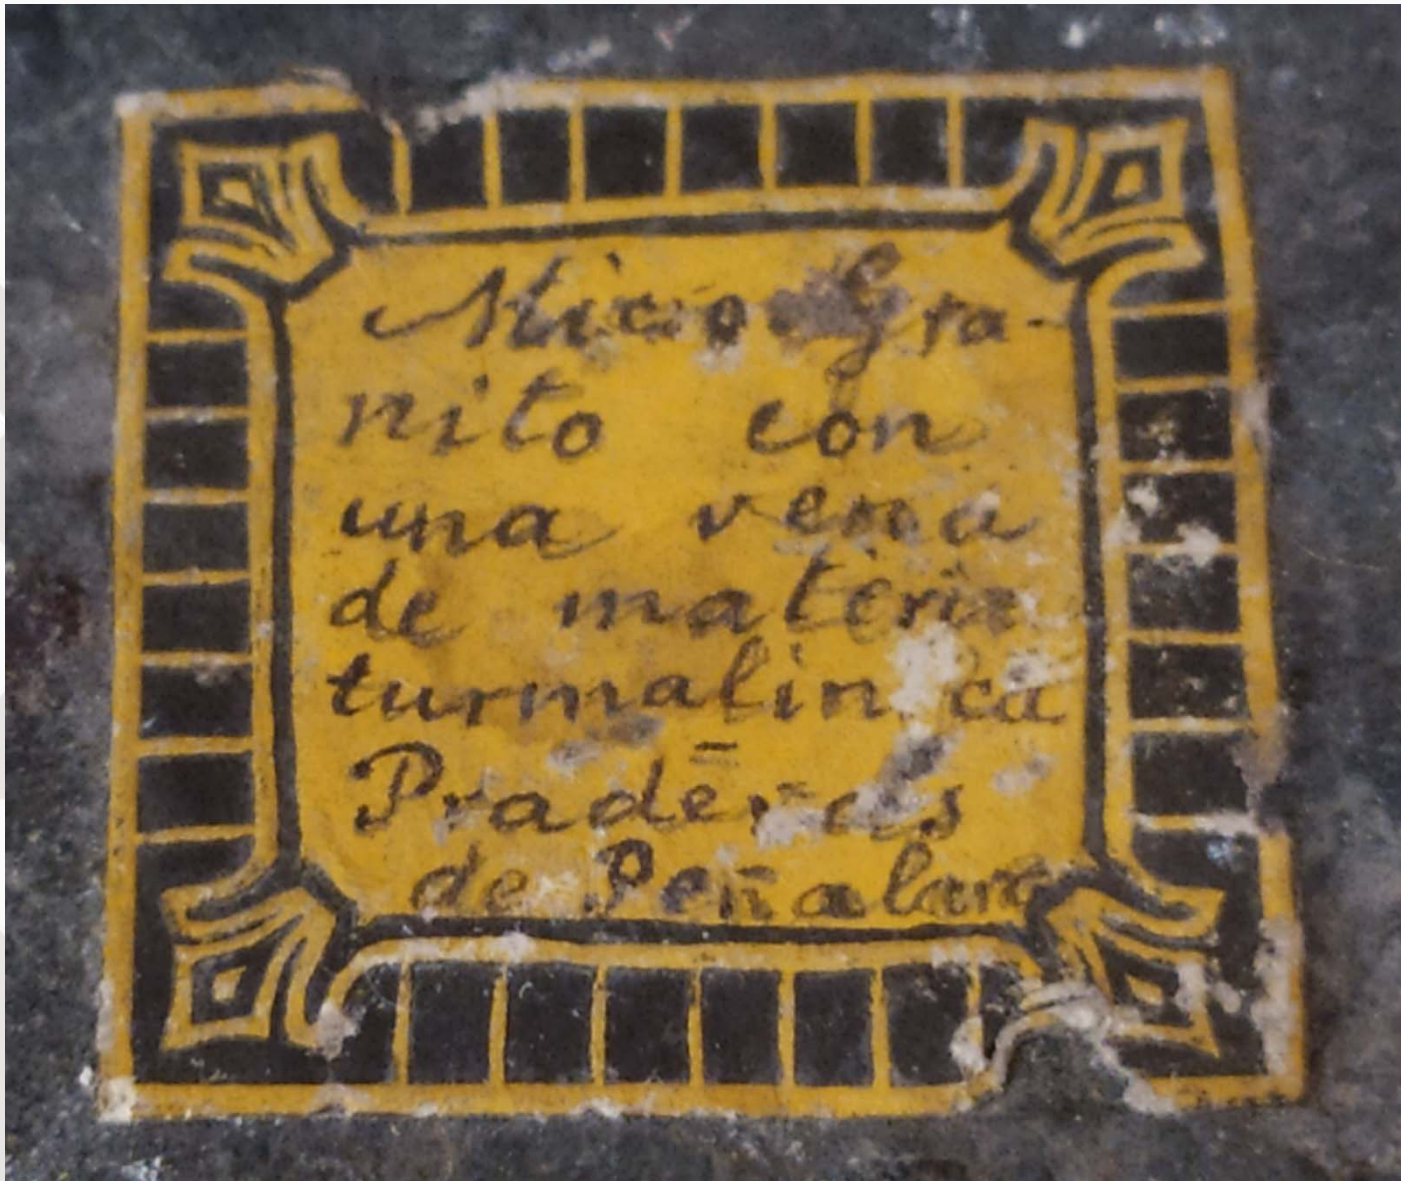 Micro-Gra-
nito con
una vena
de materia
turmalinica
Praderas
de Peñalara